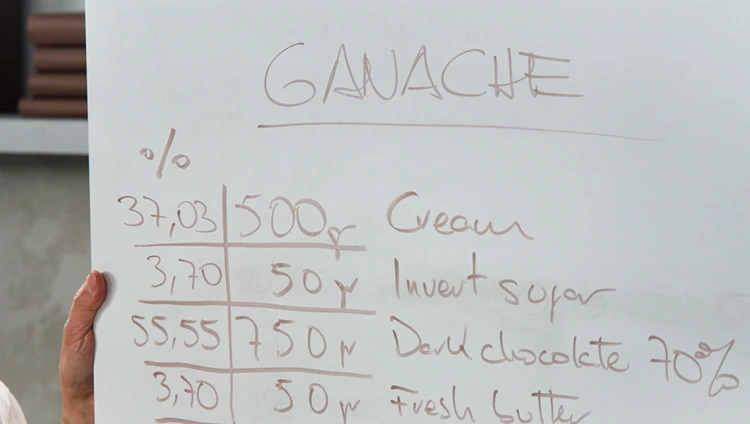 GANACHE
%
37,03 500gr Cream
3,70 50gr Invert sugar
55,55 750gr Dark chocolate 70%
3,70 50gr Fresh butter